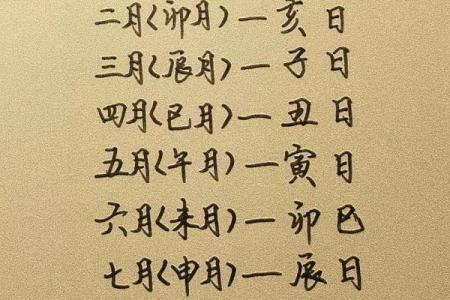 二月(卯月)—亥日
三月(辰月)—子日
四月(巳月)—丑日
五月(午月)—寅日
六月(未月)—卯巳
七月(申月)—辰日